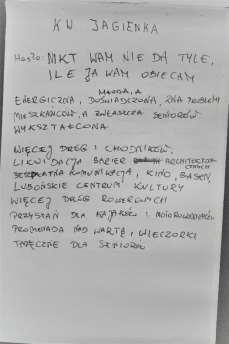 KW JAGIENKA
Hasło: NIKT WAM NIE DA TYLE,
ILE JA WAM OBIECAM
MŁODA, A
ENERGICZNA, DOŚWIADCZONA, ZNA PROBLEMY
MIESZKAŃCÓW, A ZWŁASZCZA SENIORÓW
WYKSZTAŁCONA
WIĘCEJ DRÓG I CHODNIKÓW,
LIKWIDACJA BARIER ARCHITEKTONICZNYCH
BEZPŁATNA KOMUNIKACJA, KINO, BASEN,
LUBOŃSKIE CENTRUM KULTURY
WIĘCEJ DRÓG ROWEROWYCH
PRZYSTAŃ DLA KAJAKÓW I MOTOROWODNIAKÓW
PROMENADA NAD WARTĄ, WIECZORKI
TANECZNE DLA SENIORÓW